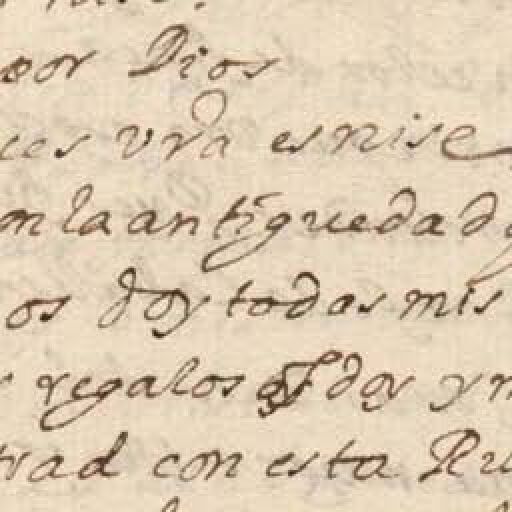 por Dios
ces vrã es nise
en la antiguedad
os doy todas mis
regalos q os doy y m
trad con esta Ru